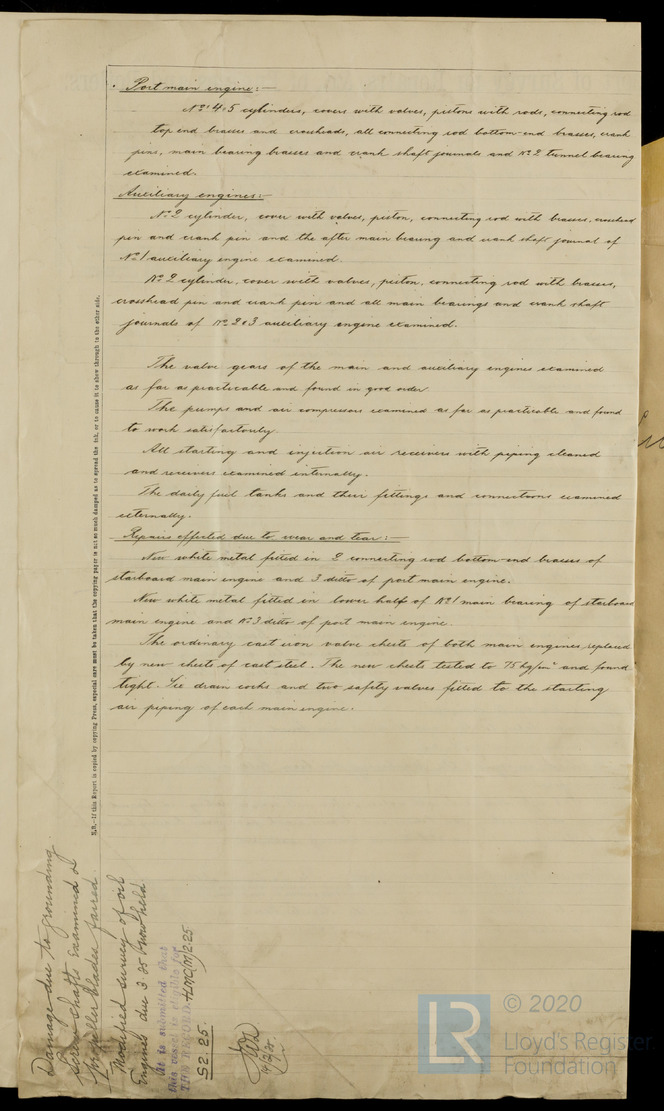 Port main engine:—
Nos 4 & 5 cylinders, covers with valves, pistons with rods, connecting rod
top end brasses and crossheads, all connecting rod bottom-end brasses, crank
pins, main bearing brasses and crank shaft journals and No 2 tunnel bearing
examined.
Auxiliary engines:—
No 2 cylinder, cover with valves, piston, connecting rod with brasses, crosshead
pin and crank pin and the after main bearing and crank shaft journal of
No 1 auxiliary engine examined.
No 2 cylinder, cover with valves, piston, connecting rod with brasses,
crosshead pin and crank pin and all main bearings and crank shaft
journals of No 2 & 3 auxiliary engine examined.
The valve gears of the main and auxiliary engines examined
as far as practicable and found in good order.
The pumps and air compressors examined as far as practicable and found
to work satisfactorily.
All starting and injection air receivers with piping cleaned
and receivers examined internally.
The daily fuel tanks and their fittings and connections examined
externally.
Repairs effected due to wear and tear:—
New white metal fitted in 2 connecting rod bottom-end brasses of
starboard main engine and 3 ditto of port main engine.
New white metal fitted in lower half of No 1 main bearing of starboard
main engine and No 3 ditto of port main engine.
The ordinary cast iron valve chests of both main engines replaced
by new chests of cast steel. The new chests tested to 75 kg/cm² and found
tight. Six drain cocks and two safety valves fitted to the starting
air piping of each main engine.
N.B.—If this Report is copied by copying Press, especial care must be taken that the copying paper is not so much damped as to spread the ink, or to cause it to show through to the other side.
Damage due to grounding.
Screw shafts examined &
propeller blades faired.
Modified survey of oil
Engines due 3.25 now held
It is submitted that
this vessel is eligible for
THE RECORD. + LMC(M) 2.25
S 2.25
© 2020
LR
Lloyd's Register
Foundation